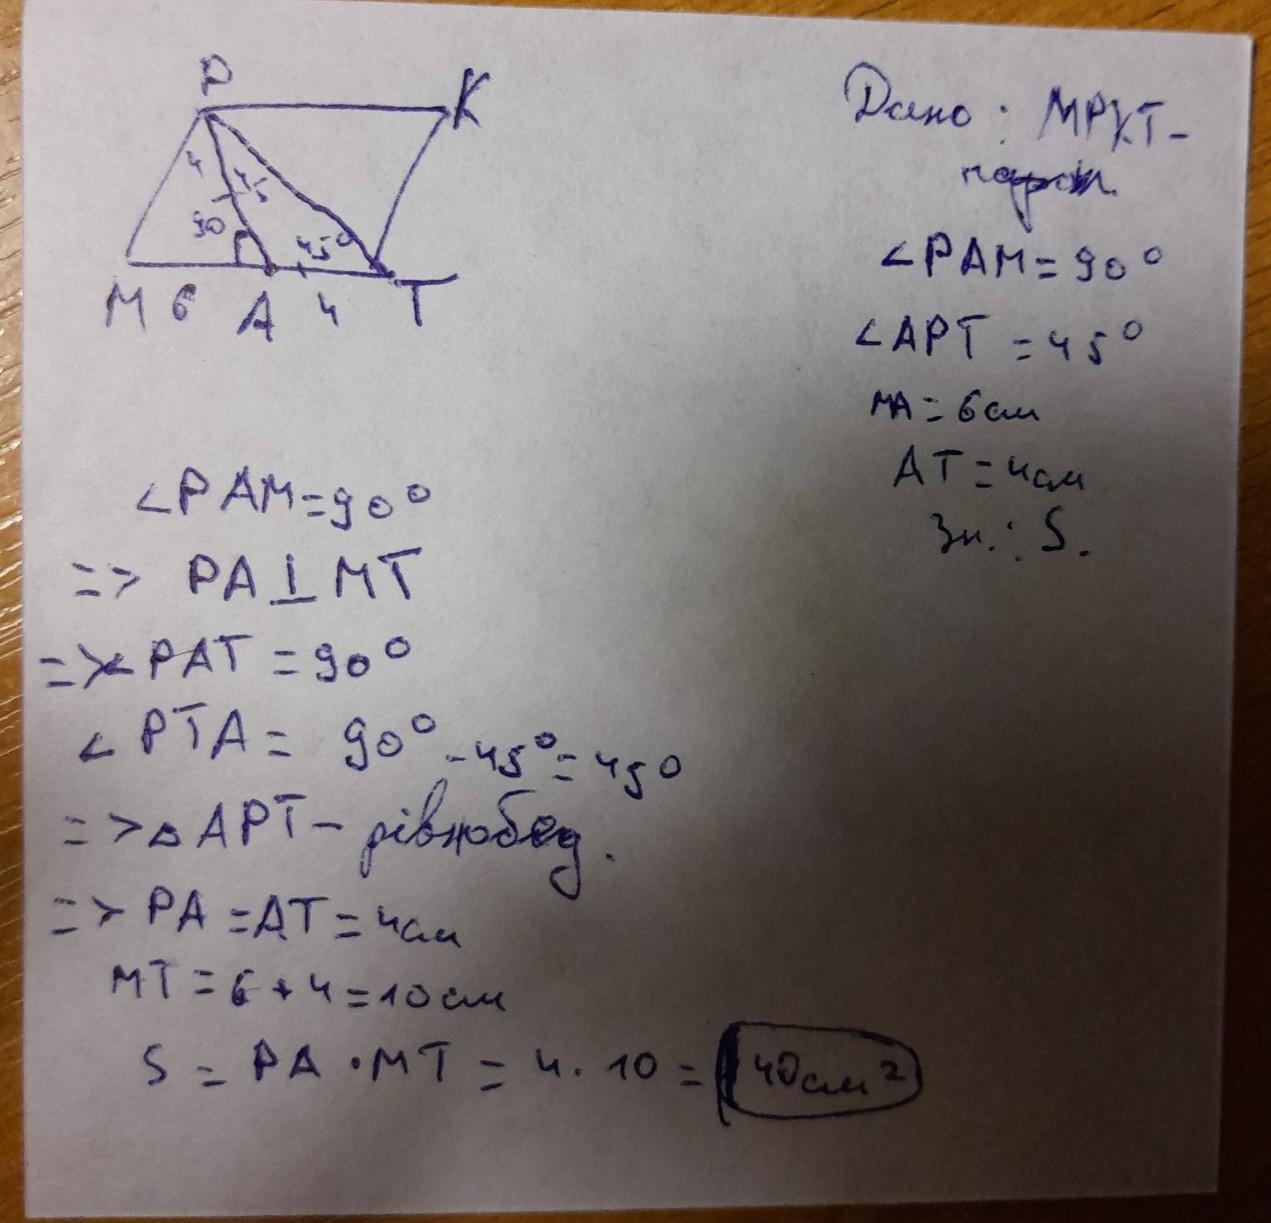 P
K
4
45
90
45°
M 6 A 4 T
Дано: MPKT-
парал.
∠PAM=90°
∠APT=45°
MA=6см
AT=4см
Зн.: S.
∠PAM=90°
=> PA⊥MT
=>∠PAT=90°
∠PTA= 90°-45°=450
=>△APT- рівнобед.
=> PA=AT=4см
MT=6+4=10см
S = PA·MT = 4·10= 40см²